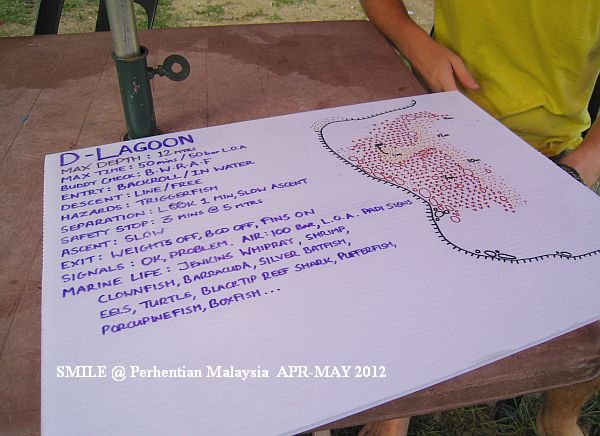 D-LAGOON
MAX DEPTH : 12 MTRS
MAX TIME : 50 MINS / 50 bar L.O.A
BUDDY CHECK : B.W.R.A.F
ENTRY : BACKROLL / IN WATER
DESCENT : LINE / FREE
HAZARDS : TRIGGERFISH
SEPARATION : LOOK 1 MIN, SLOW ASCENT
SAFETY STOP : 3 MINS @ 5 MTRS
ASCENT : SLOW
EXIT : WEIGHTS OFF, BCD OFF, FINS ON
SIGNALS : OK, PROBLEM. AIR : 100 BAR, L.O.A. PADI SIGNS
MARINE LIFE : JENKINS WHIPRAY, SHRIMP,
CLOWNFISH, BARRACUDA, SILVER BATFISH,
EELS, TURTLE, BLACKTIP REEF SHARK, PUFFERFISH,
PORCUPINEFISH, BOXFISH...
SMILE @ Perhentian Malaysia APR-MAY 2012